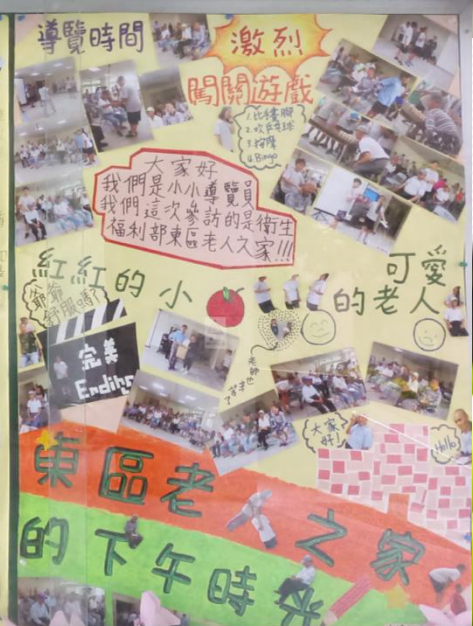 導覽時間
激烈
闖關遊戲
1.比手畫腳
2.吹乒乓球
3.按摩
4.Bingo
大家好
我們是小小導覽員
我們這次參訪的是衛生
福利部東區老人之家!!!
紅紅的小
可愛
的老人
爺爺
舒服嗎?
完美
Ending
老師也
大家
好!
Hello
東區老人之家
的下午時光